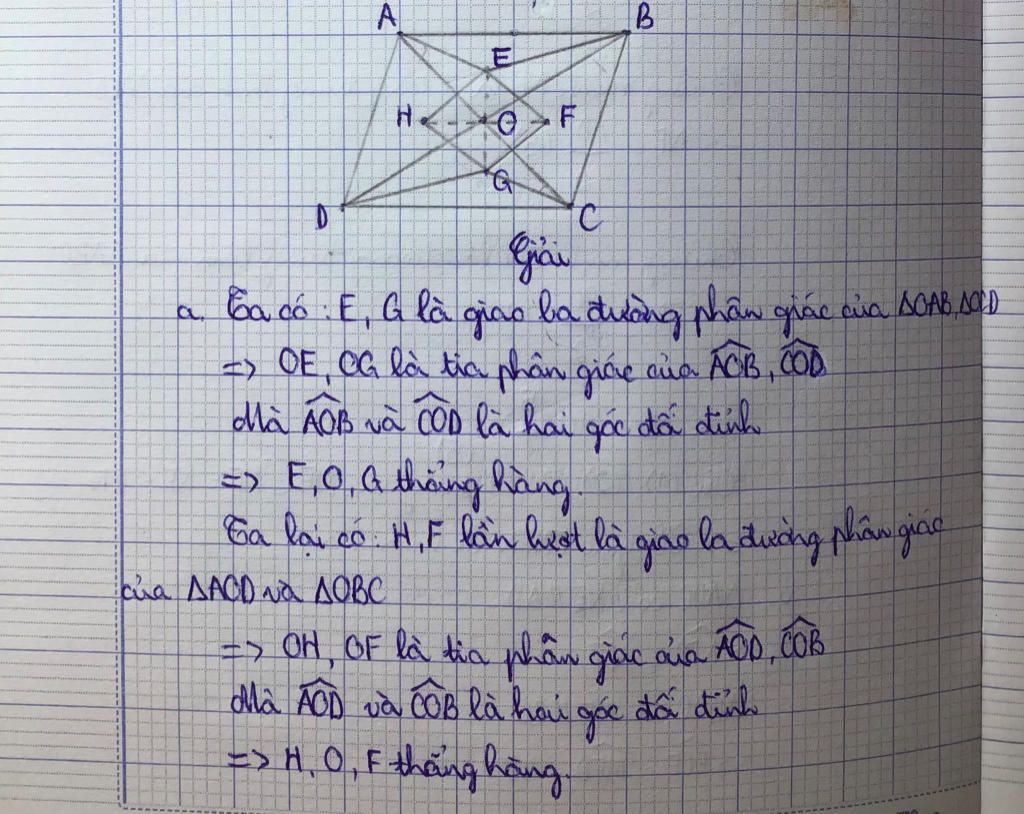 A
B
E
H
O
F
G
D
C
Giải
a. Ta có : E, G là giao ba đường phân giác của ΔOAB, ΔOCD
=> OE, OG là tia phân giác của \widehat{AOB}, \widehat{COD}
Mà \widehat{AOB} và \widehat{COD} là hai góc đối đỉnh
=> E, O, G thẳng hàng.
Ta lại có : H, F lần lượt là giao ba đường phân giác
của ΔAOD và ΔOBC
=> OH, OF là tia phân giác của \widehat{AOD}, \widehat{COB}
Mà \widehat{AOD} và \widehat{COB} là hai góc đối đỉnh
=> H, O, F thẳng hàng.